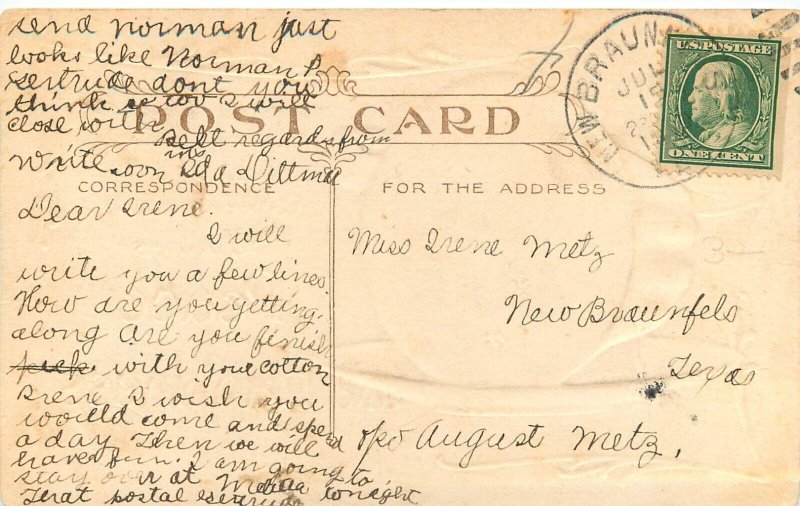 send Norman just
looks like Norman P
Gertrude dont you
think so too I will
close with
Best regards from
write soon Ida Dittmar
POST CARD
CORRESPONDENCE
FOR THE ADDRESS
NEW BRAUN
JUL
U.S. POSTAGE
ONE CENT
Dear Irene.
I will
write you a few lines
How are you getting
along Are you finish
with your cotton
Irene I wish you
would come and spend
a day Then we will
have fun. I am going to
stay over at
tonight
That postal
Miss Irene Metz
New Braunfels
Texas
c/o August Metz.